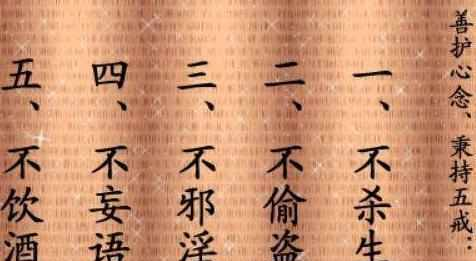 善护心念、秉持五戒．
一、不杀生
二、不偷盗
三、不邪淫
四、不妄语
五、不饮酒